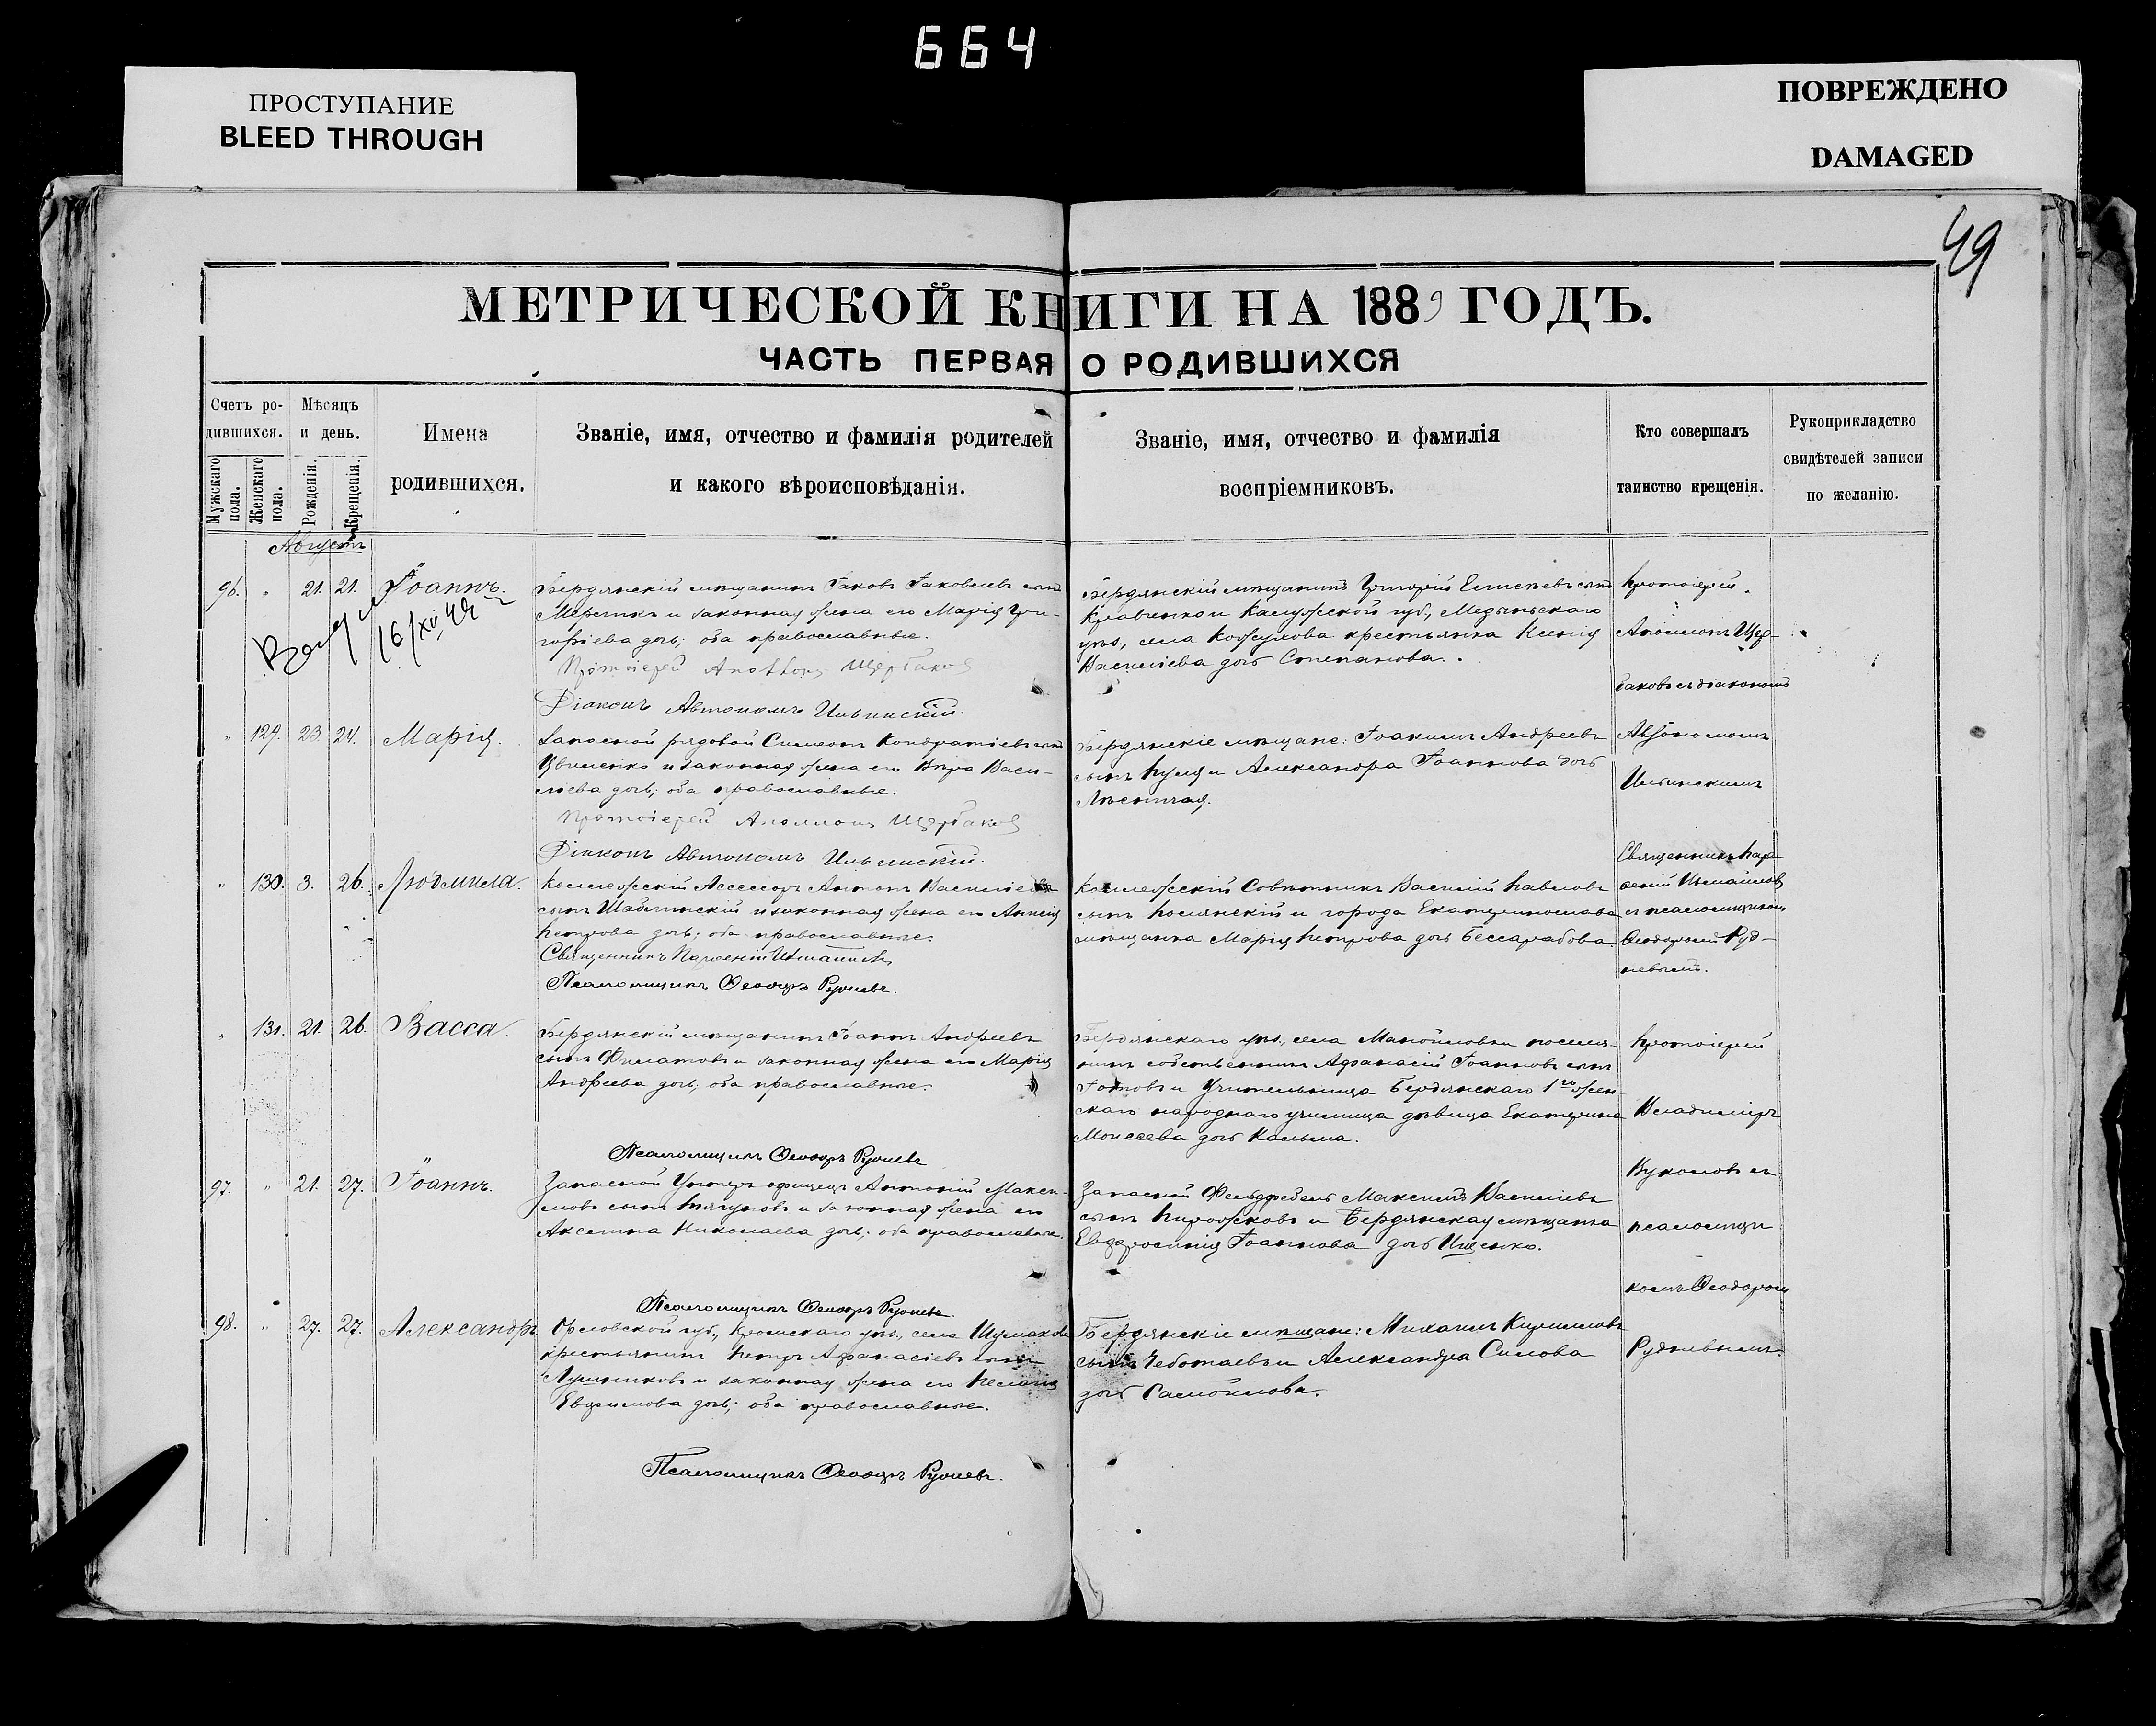 664
ПРОСТУПАНИЕ
BLEED THROUGH
ПОВРЕЖДЕНО
DAMAGED
49
МЕТРИЧЕСКОЙ КНИГИ НА 1889 ГОДЪ.
ЧАСТЬ ПЕРВАЯ О РОДИВШИХСЯ
Счетъ ро-
дившихся.
Мужскаго пола.
Женскаго пола.
Мѣсяцъ
и день.
Рожденія.
Крещенія.
Имена
родившихся.
Званіе, имя, отчество и фамилія родителей
и какого вѣроисповѣданія.
Званіе, имя, отчество и фамилія
воспріемниковъ.
Кто совершалъ
таинство крещенія.
Рукоприкладство
свидѣтелей записи
по желанію.
Августъ
96. " 21. 21. Іоаннъ.
16/XII 49
Бердянскій мѣщанинъ Іаковъ Іаковлевъ сынъ
и законная жена его Марія Гри-
горіева дочь; оба православные.
Протоіерей Аполлонъ Щербаковъ
Діаконъ Автономъ Ильинскій.
Бердянскій мѣщанинъ Григорій сынъ
Кравченко и Калужской губ., Медынскаго
уѣз., села Кожухова крестьянка Ксенія
Василіева дочь Степанова.
Протоіерей
Аполлонъ Щер-
баковъ съ діакономъ
Автономомъ
Ильинскимъ
" 129. 23. 24. Марія.
Запасной рядовой Симеонъ Кондратіевъ сынъ
Цвиленко и законная жена его Вѣра Васи-
ліева дочь; оба православные.
Протоіерей Аполлонъ Щербаковъ
Діаконъ Автономъ Ильинскій.
Бердянскіе мѣщане: Іоакимъ Андреевъ
сынъ и Александра Іоаннова дочь
" 130. 3. 26. Людмила.
Коллежскій Ассесоръ Антонъ Василіевъ
сынъ и законная жена его
Петрова дочь; оба православные.
Священникъ Парѳеній Измаиловъ
Псаломщикъ Ѳеодоръ Рудневъ.
Коллежскій Совѣтникъ Василій Павловъ
сынъ и города Екатеринослава
мѣщанка Марія Петрова дочь Бессарабова.
Священникъ Пар-
ѳеній Измаиловъ
съ псаломщикомъ
Ѳеодоромъ Руд-
невымъ.
" 131. 21. 26. Васса.
Бердянскій мѣщанинъ Іоаннъ Андреевъ
сынъ Филатовъ и законная жена его Марія
Андреева дочь; оба православные.
Псаломщикъ Ѳеодоръ Рудневъ
Бердянскаго уѣз., села Манойловки поселя-
нинъ собственникъ Аѳанасій Іоанновъ сынъ
и учительница Бердянскаго 1го жен-
скаго народнаго училища дѣвица Екатерина
Моисеева дочь Кальма.
Протоіерей
Владиміръ
Вуколовъ съ
псаломщи
комъ Ѳеодоромъ
Рудневымъ.
97. " 21. 27. Іоаннъ.
Запасной Унтеръ офицеръ Антоній Макси-
мовъ сынъ и законная жена его
Аксинья Николаева дочь; оба православные.
Псаломщикъ Ѳеодоръ Рудневъ.
Запасной Фельдфебель Максимъ Василіевъ
сынъ Пирожковъ и Бердянская мѣщанка
Евфросинія Іоаннова дочь Ищенко.
98. " 27. 27. Александръ
Орловской губ., Кромскаго уѣз., села Шумакова
крестьянинъ Петръ Аѳанасіевъ сынъ
и законная жена его Пелагія
Евфимова дочь; оба православные.
Псаломщикъ Ѳеодоръ Рудневъ.
Бердянскіе мѣщане: Михаилъ Кирилловъ
сынъ Чеботаевъ и Александра Силова
дочь Самойлова.